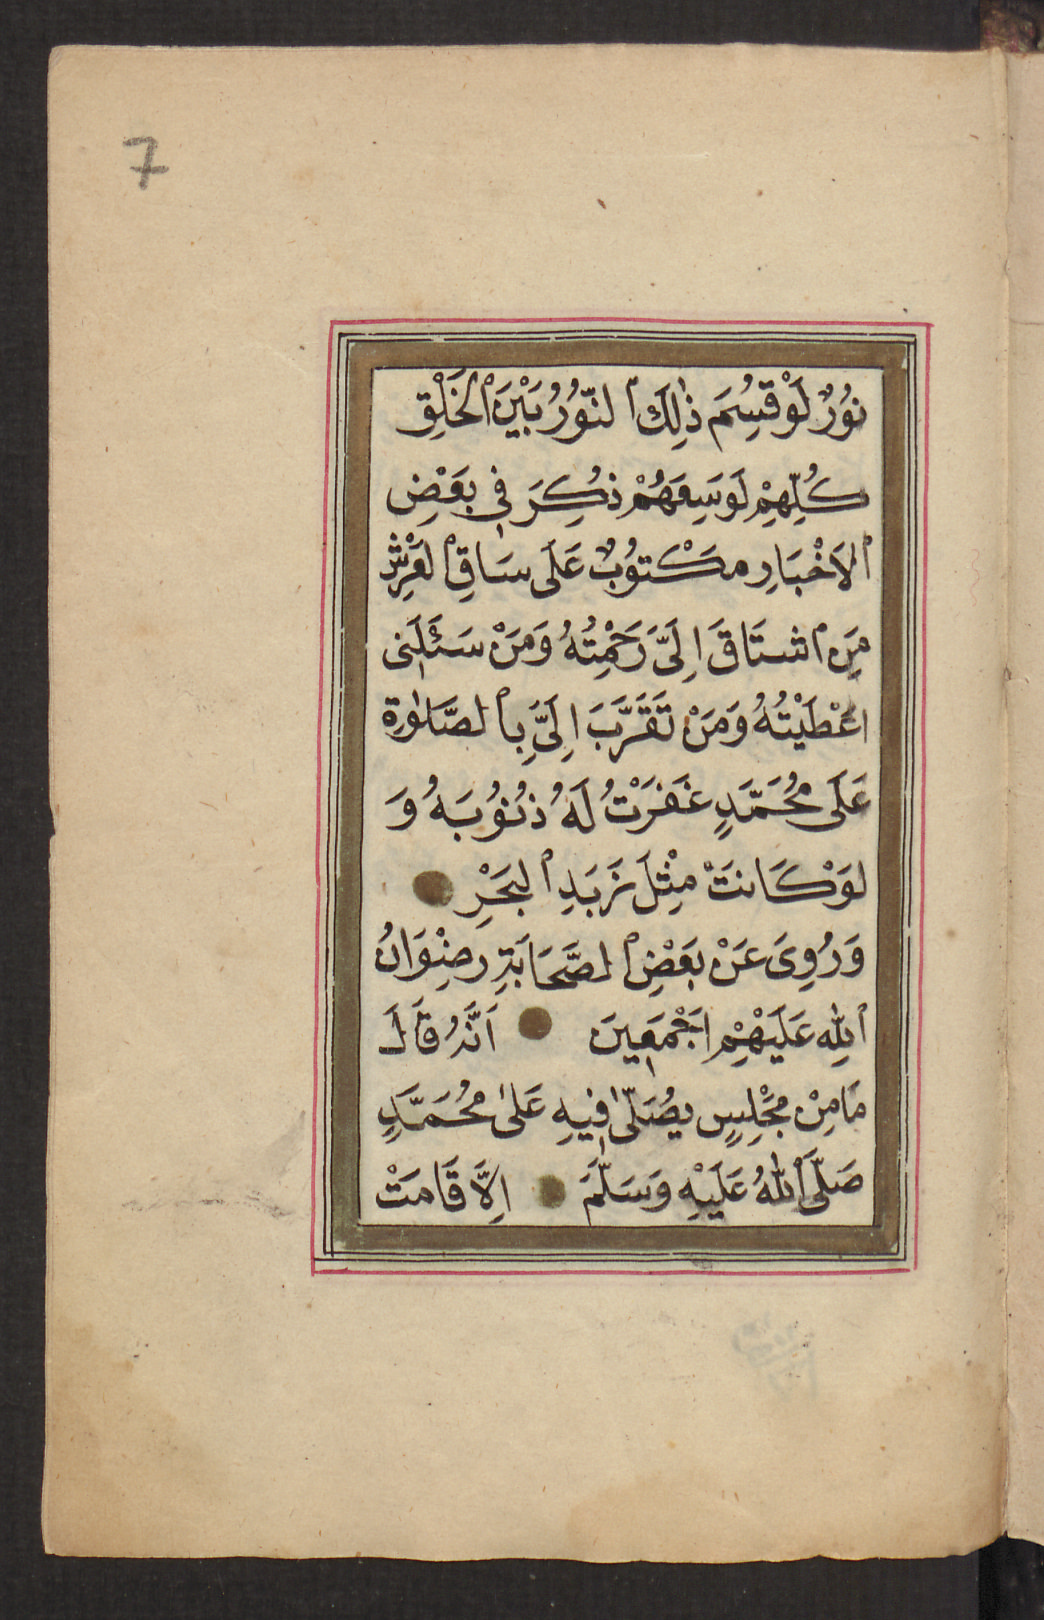 7
نُورٌ لَوْ قُسِمَ ذٰلِكَ ٱلنُّورُ بَيْنَ ٱلْخَلْقِ
كُلِّهِمْ لَوَسِعَهُمْ ذُكِرَ فِى بَعْضِ
ٱلاَخْبَارِ مَكْتُوبٌ عَلَى سَاقِ ٱلْعَرْشِ
مَنِ ٱشتَاقَ اِلَىَّ رَحِمْتُهُ وَمَنْ سَئَلَنِى
اعْطَيْتُهُ وَمَنْ تَقَرَّبَ اِلَىَّ بِٱلصَّلٰوةِ
عَلَى مُحَمَّدٍ غَفَرْتُ لَهُ ذُنُوُبَهُ وَ
لَوْ كَانَتْ مِثْلَ زَبَدِ ٱلبَحْرِ
وَرُوِىَ عَنْ بَعْضِ ٱلصَّحَابَةِ رِضْوَانُ
ٱللهِ عَلَيْهِمْ اَجْمَعِينَ اَنَّهُ قَالَ
مَا مِنْ مَجْلِسٍ يُصَلّٰى فِيهِ عَلىٰ مُحَمَّدٍ
صَلَّى ٱللهُ عَلَيْهِ وَسَلَّمَ اِلاَّ قَامَتْ